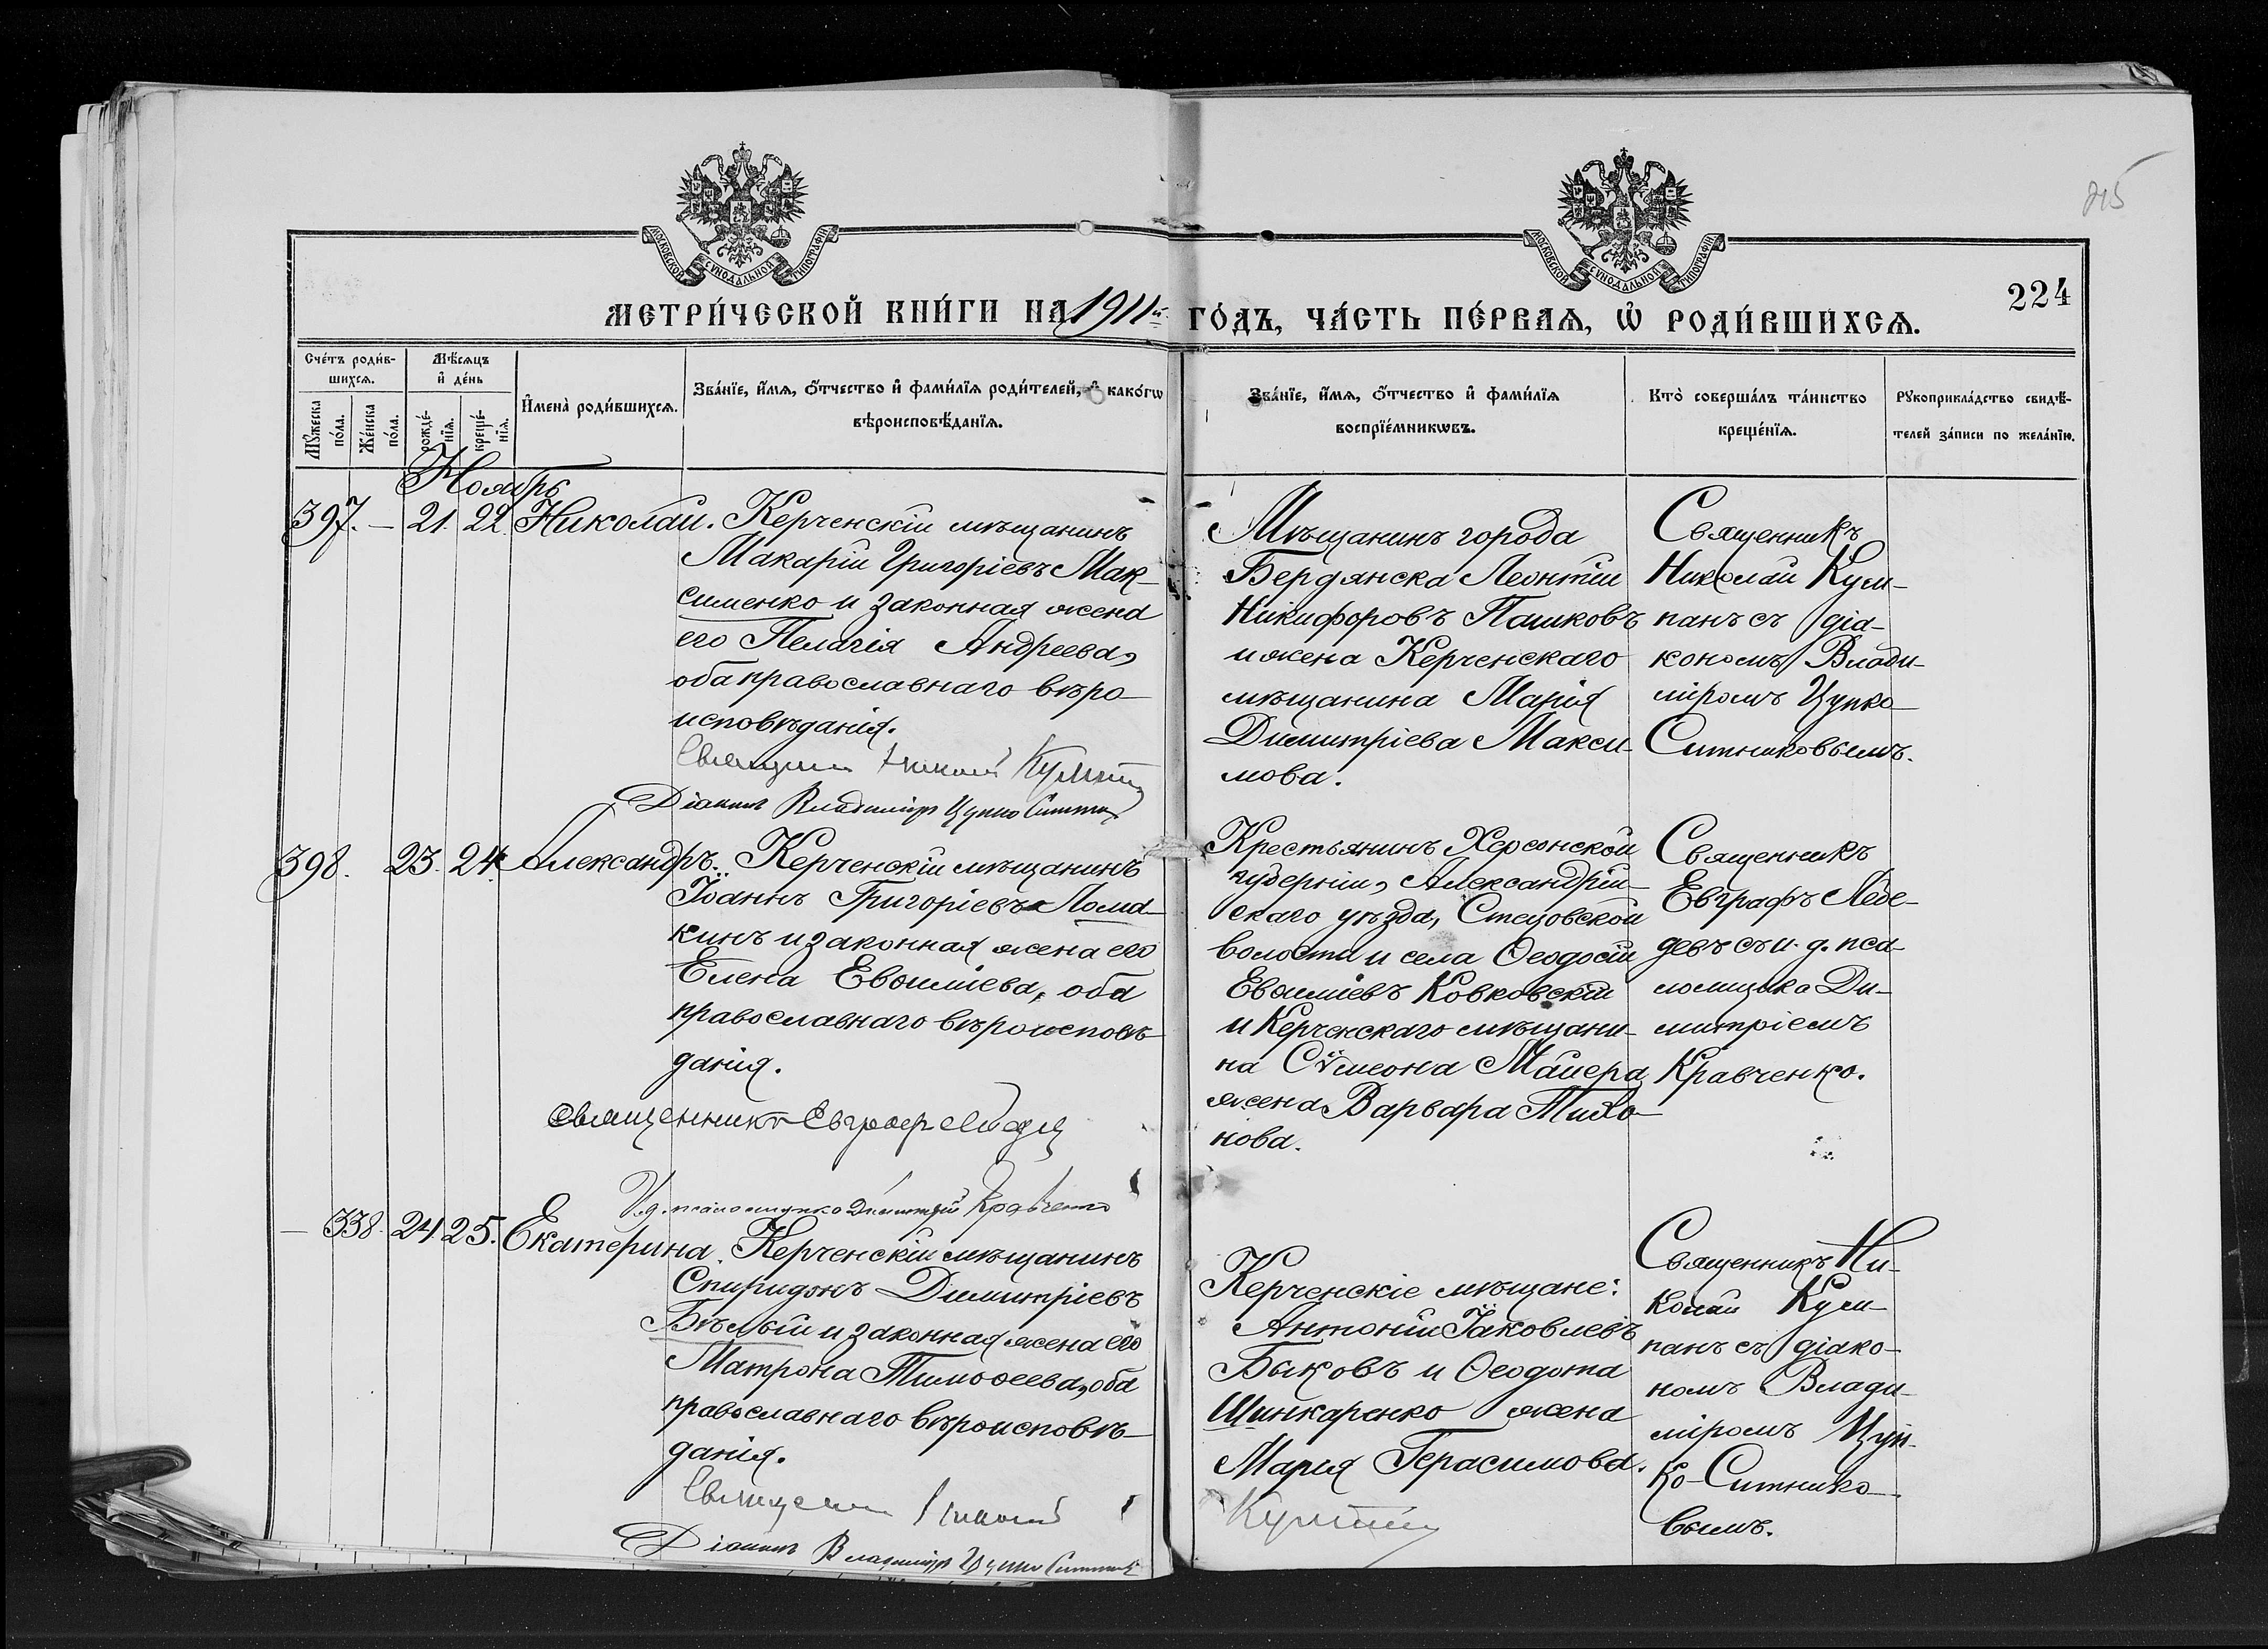 215
МОСКОВСКОЙ СѴНОДАЛЬНОЙ ТИПОГРАФІИ
МОСКОВСКОЙ СѴНОДАЛЬНОЙ ТИПОГРАФІИ
224
МЕТРИ́ЧЕСКОЙ КНИ́ГИ НА 1911й ГО́ДЪ, ЧА́СТЬ ПЕ́РВАѦ, Ѽ РОДИ́ВШИХСѦ.
Сче́тъ роди́в-
шихсѧ.
Мѣ́сѧцъ
и҆ де́нь
Мꙋ́жеска
по́ла.
Же́нска
по́ла.
рожде́-
нїѧ.
креще́-
нїѧ.
И҆мена̀ роди́вшихсѧ.
Зва́нїе, и҆́мѧ, ѻ҆́тчество и҆ фами́лїѧ роди́телей, и҆ како́гѡ
вѣроисповѣ́данїѧ.
Зва́нїе, и҆́мѧ, ѻ҆́тчество и҆ фами́лїѧ
воспрїе́мникѡвъ.
Кто̀ соверша́лъ та́инство
креще́нїѧ.
Рꙋкоприкла́дство свидѣ́-
телей за́писи по жела́нїю.
Ноябрь
397. — 21. 22. Николай. Керченскій мѣщанинъ
Макарій Григоріевъ Мак-
сименко и законная жена
его Пелагія Андреева,
оба православнаго вѣро-
исповѣданія.
Священник Николай
Діаконъ Владиміръ Цупко Ситник
Мѣщанинъ города
Бердянска Леонтій
Никифоровъ Пашковъ
и жена Керченскаго
мѣщанина Марія
Димитріева Макси-
мова.
Священникъ
Николай Кум-
панъ съ діа-
кономъ Влади-
міромъ Цупко
Ситниковымъ.
398. 23. 24. Александръ. Керченскій мѣщанинъ
Іоаннъ Григоріевъ Лома-
кинъ и законная жена его
Елена Евѳиміева, оба
православнаго вѣроисповѣ-
данія.
Священникъ Евграфъ
И.д. псаломщика Димитрій Кравченко
Крестьянинъ Херсонской
губерніи, Александрій-
скаго уѣзда, Стецовской
волости и села Ѳеодосій
Евѳиміевъ Ковковскій
и Керченскаго мѣщани-
на Сѵмеона Майера
жена Варвара Тихо-
нова.
Священникъ
Евграфъ Лебе-
девъ съ и. д. пса-
ломщика Ди-
митріемъ
Кравченко.
— 338. 24 25. Екатерина. Керченскій мѣщанинъ
Спиридонъ Димитріевъ
Бѣлый и законная жена его
Матрона Тимоѳеева, оба
православнаго вѣроисповѣ-
данія.
Священник Николай
Діаконъ Владиміръ Цупко Ситник
Керченскіе мѣщане:
Антоній Іаковлевъ
Быковъ и Ѳеодота
Шинкаренко жена
Марія Герасимова.
Священникъ Ни-
колай Кум-
панъ съ діако-
номъ Влади-
міромъ Цуп-
ко-Ситнико-
вымъ.